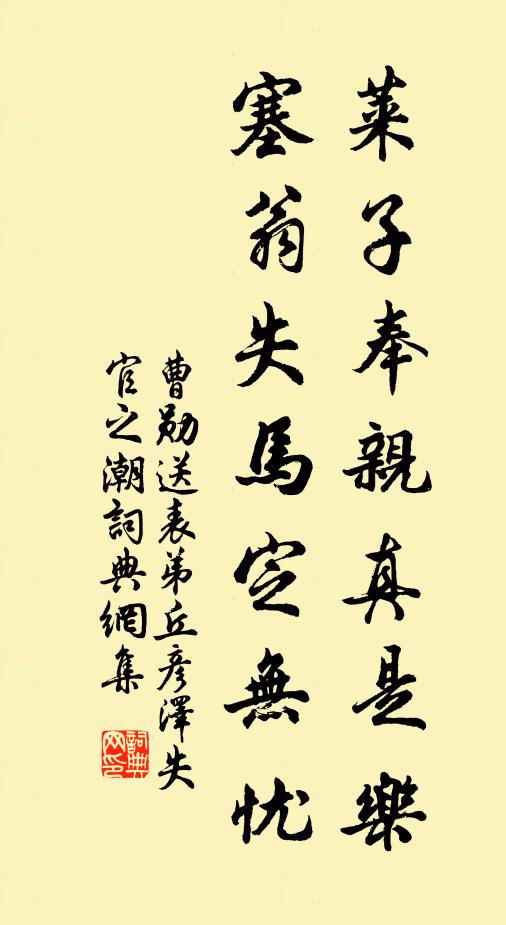 萊子奉親真是樂
塞翁失馬定無忧
曹勛送表弟丘彥澤失
官之潮詞典網集
詞典
网印